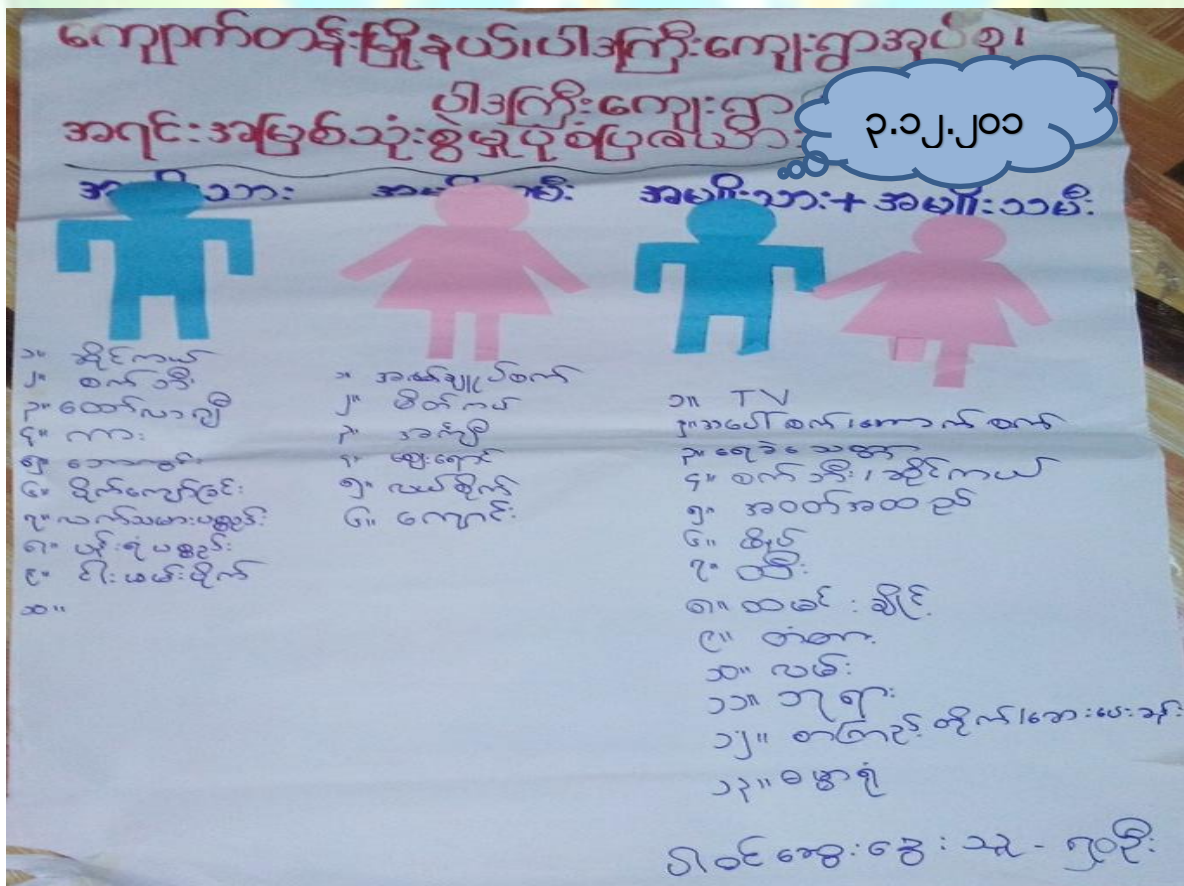 ကျောက်တန်းမြို့နယ်၊ပါဒကြီးကျေးရွာအုပ်စု၊
ပါဒကြီးကျေးရွာ
အရင်းအမြစ်သုံးစွဲမှုပုံစံပြဇယား
၃.၁၂.၂၀၁
အမျိုးသား+အမျိုးသမီး
၁။ ဆိုင်ကယ်
၂။ စက်ဘီး
၃။ ထော်လာဂျီ
၄။ ကား
၅။
၆။ ပိုက်ကျော်ခြင်း
၇။ လက်သမားပစ္စည်း
၈။ ပန်းရံပစ္စည်း
၉။ ငါးဖမ်းပိုက်
၁၀။
၁။ အပ်ချုပ်စက်
၂။ မိတ်ကပ်
၃။ အင်္ကျီ
၄။ ဈေးရောင်း
၅။ လယ်စိုက်
၆။ ကျောင်း
၁။ TV
၂။ အပေါ်စက်၊အောက်စက်
၃။ ရေခဲသေတ္တာ
၄။ စက်ဘီး၊ ဆိုင်ကယ်
၅။ အဝတ်အထည်
၆။ ဖိနပ်
၇။ ထီး
၈။ ထမင်းချိုင့်
၉။ တံတား
၁၀။ လမ်း
၁၁။ ဘုရား
၁၂။ စာကြည့်တိုက်၊ဆေးပေးခန်း
၁၃။ ဓမ္မာရုံ
ပါဝင်ဆွေးနွေးသူ - ၅၀ဦး